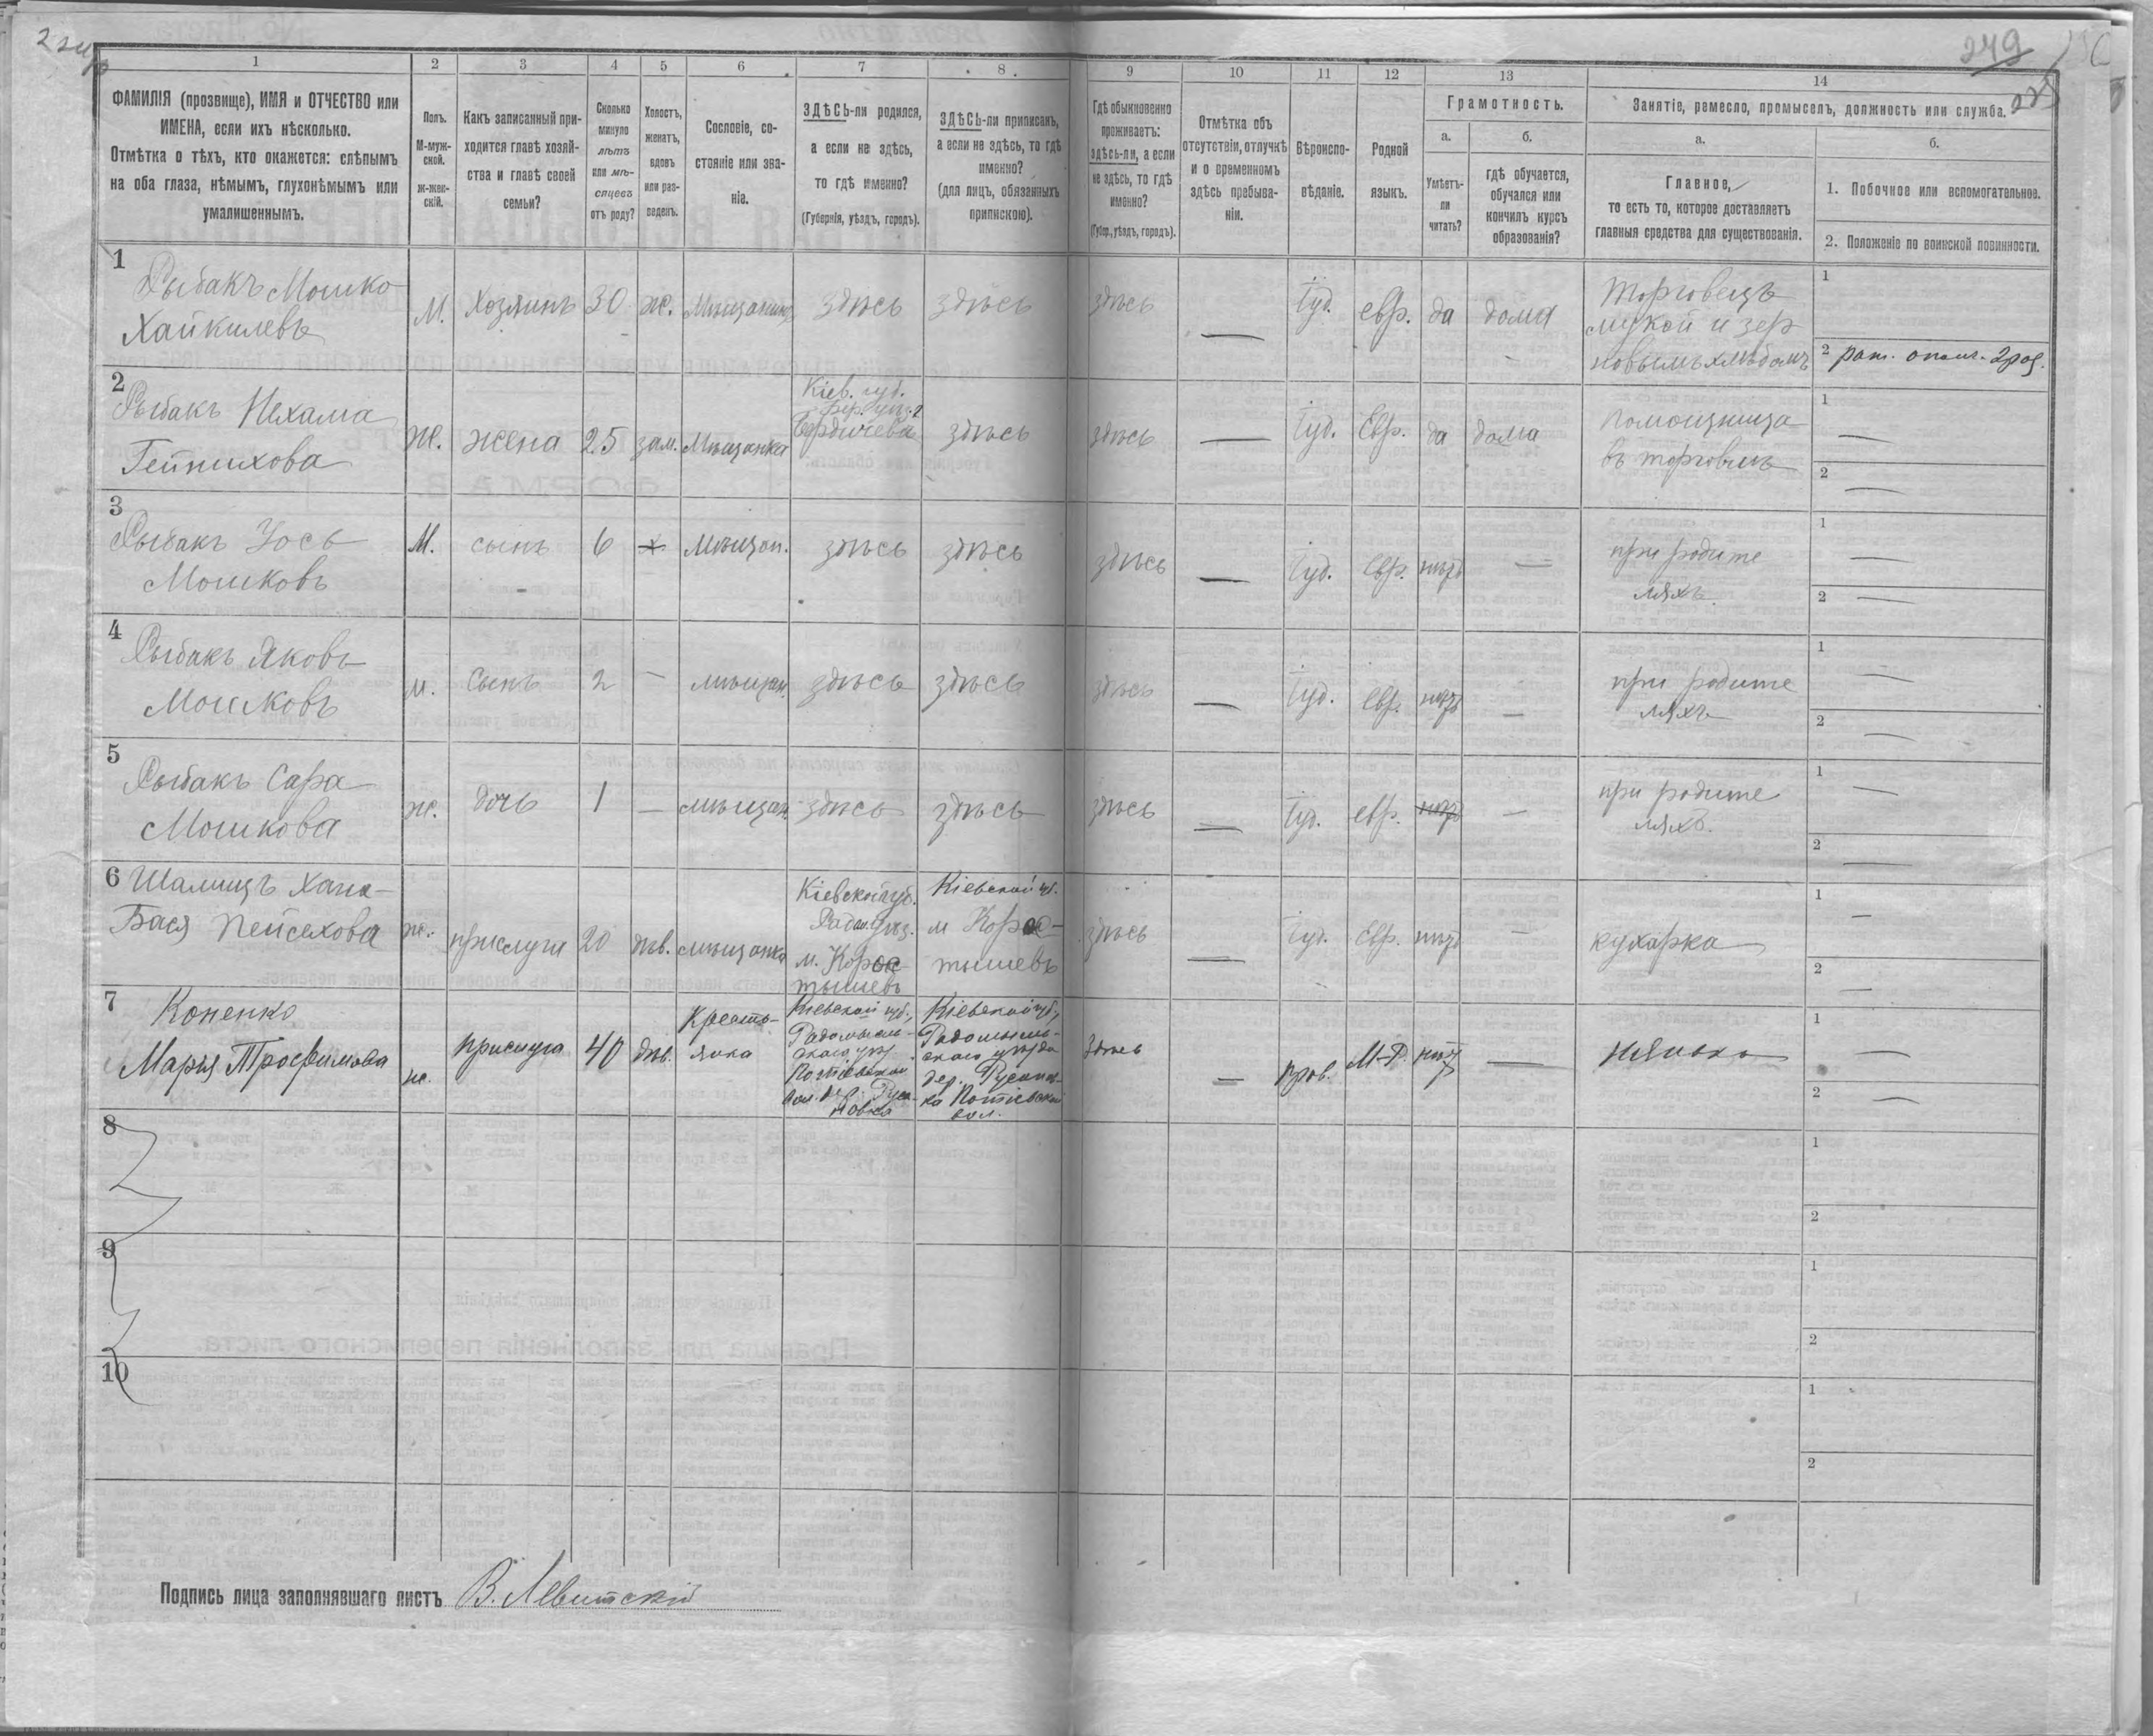 249
1 2 3 4 5 6 7 8 9 10 11 12 13 14
ФАМИЛІЯ (прозвище), ИМЯ и ОТЧЕСТВО или
ИМЕНА, если ихъ нѣсколько.
Отмѣтка о тѣхъ, кто окажется: слѣпымъ
на оба глаза, нѣмымъ, глухонѣмымъ или
умалишеннымъ.
Полъ.
М-муж-
ской.
Ж-жен-
скій.
Какъ записанный при-
ходится главѣ хозяй-
ства и главѣ своей
семьи?
Сколько
минуло
лѣтъ
или мѣ-
сяцевъ
отъ роду?
Холостъ,
женатъ,
вдовъ
или раз-
веденъ.
Сословіе, со-
стояніе или зва-
ніе.
ЗДѢСЬ-ли родился,
а если не здѣсь,
то гдѣ именно?
(Губернія, уѣздъ, городъ).
ЗДѢСЬ-ли приписанъ,
а если не здѣсь, то гдѣ
именно?
(для лицъ, обязанныхъ
припискою).
Гдѣ обыкновенно
проживаетъ:
здѣсь-ли, а если
не здѣсь, то гдѣ
именно?
(Губер., уѣздъ, городъ).
Отмѣтка объ
отсутствіи, отлучкѣ
и о временномъ
здѣсь пребыва-
ніи.
Вѣроиспо-
вѣданіе.
Родной
языкъ.
Грамотность.
а. б.
Умѣетъ-
ли
читать?
гдѣ обучается,
обучался или
кончилъ курсъ
образованія?
Занятіе, ремесло, промыселъ, должность или служба.
а. б.
Главное,
то есть то, которое доставляетъ
главныя средства для существованія.
1. Побочное или вспомогательное.
2. Положеніе по воинской повинности.
1
Рыбакъ Мошко
Хайкилевъ
М. Хозяинъ 30 ж. Мѣщанинъ здѣсь здѣсь здѣсь — Іуд. евр. да дома
Торговецъ
мукой и зер
новымъ хлѣбомъ
1
2 рат. опол. 2 раз.
2
Рыбакъ Нехама
Гейнихова
Ж. жена 25 зам. Мѣщанка
Кіев. губ.
Бер. уѣз. г.
Бердичева
здѣсь здѣсь — Іуд. Евр. да дома
помощница
въ торговлѣ
1 —
2 —
3
Рыбакъ Іось
Мошковъ
М. сынъ 6 х Мѣщан. здѣсь здѣсь здѣсь — Іуд. Евр. нѣтъ —
при родите
ляхъ
1 —
2 —
4
Рыбакъ Яковъ
Мошковъ
м. Сынъ 2 — мѣщан. здѣсь здѣсь здѣсь — Іуд. Евр. нѣтъ —
при родите
ляхъ
1 —
2 —
5
Рыбакъ Сара
Мошкова
ж. дочь 1 — мѣщан. здѣсь здѣсь здѣсь — Іуд. евр. нѣтъ —
при родите
ляхъ.
1 —
2 —
6 Шамицъ Хана-
Бася Пейсахова
ж. прислуга 20 дѣв. мѣщанка
Кіевской губ.
Радом. уѣз.
м. Корос-
тышевъ
Кіевской губ.
м Корос-
тышевъ
здѣсь — Іуд. Евр. нѣтъ —
кухарка
1 —
2 —
7
Коненко
Марія Трофимова
ж. прислуга 40 дѣв.
Кресть-
янка
Кіевской губ.,
Радомысль-
скаго уѣз
Потіевской
вол. дер. Руса-
новка
Кіевской губ.,
Радомысль-
скаго уѣзда
дер. Русанов-
ка Потіевской
вол.
Здѣсь — прав. М-Р. нѣтъ —
нянька
1 —
2 —
8
1
2
9
1
2
10
1
2
Подпись лица заполнявшаго листъ В. Левитскій